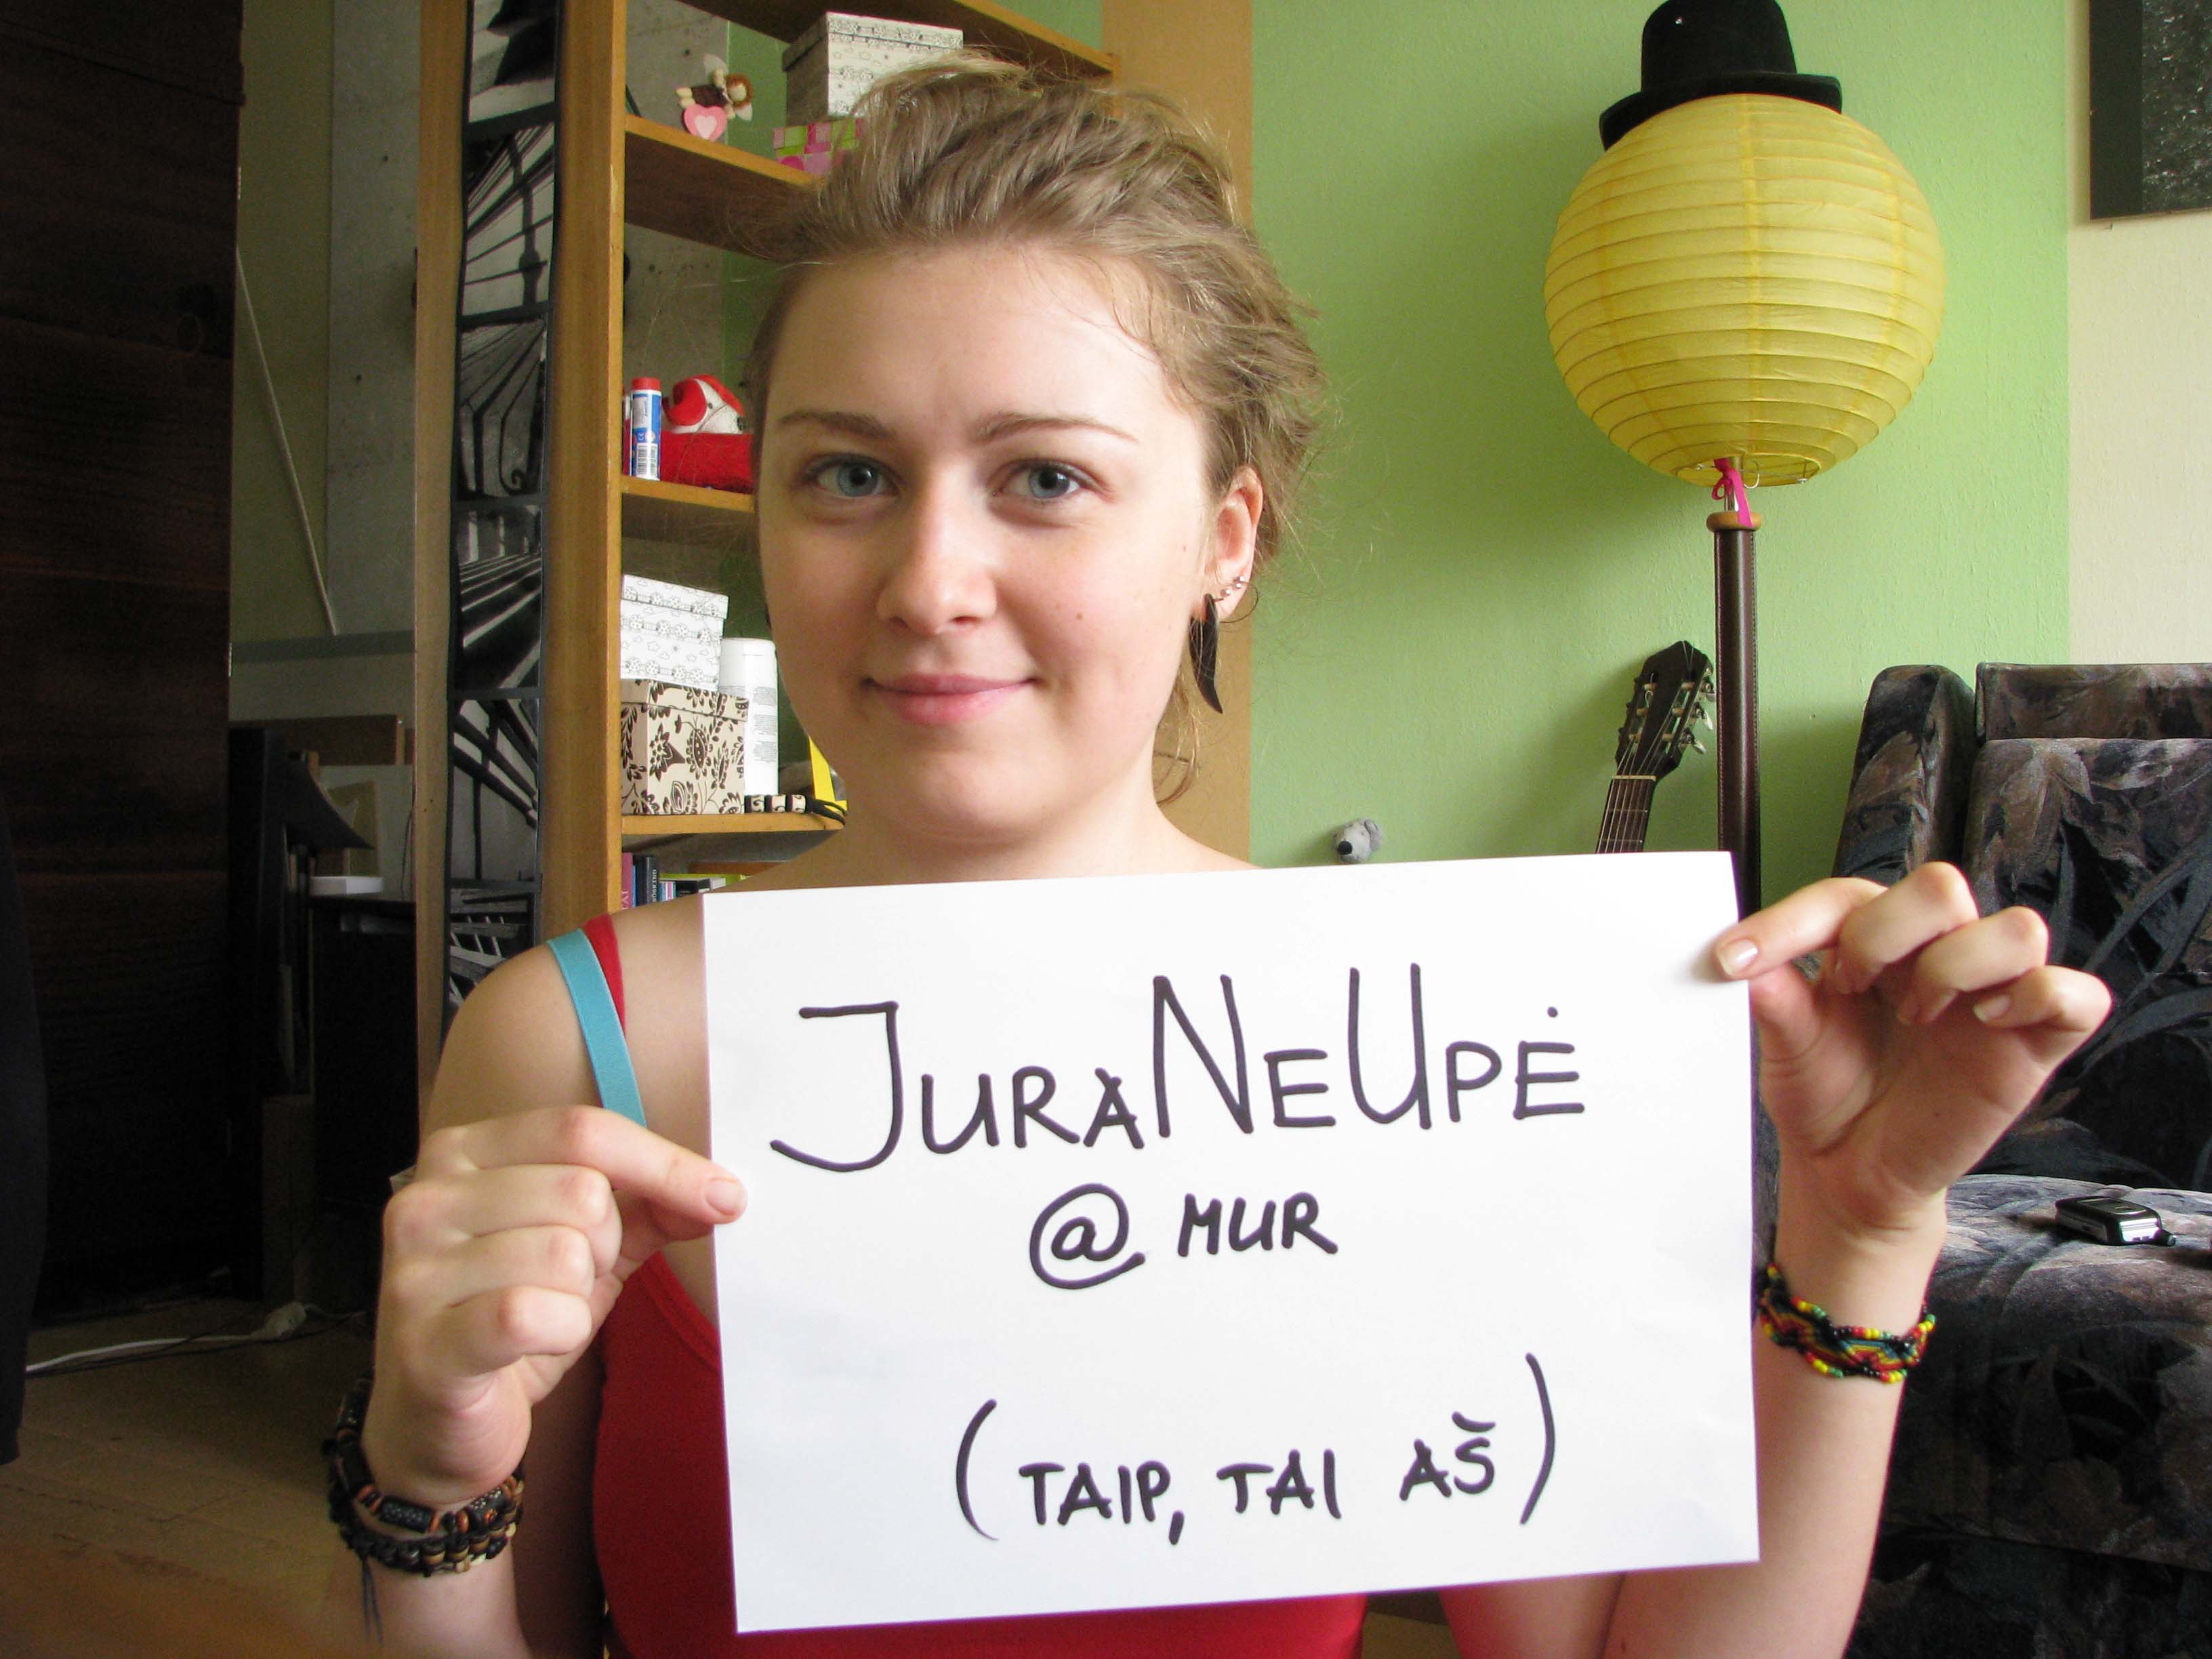 JURANEUPĖ
@ MUR
(TAIP, TAI AŠ)